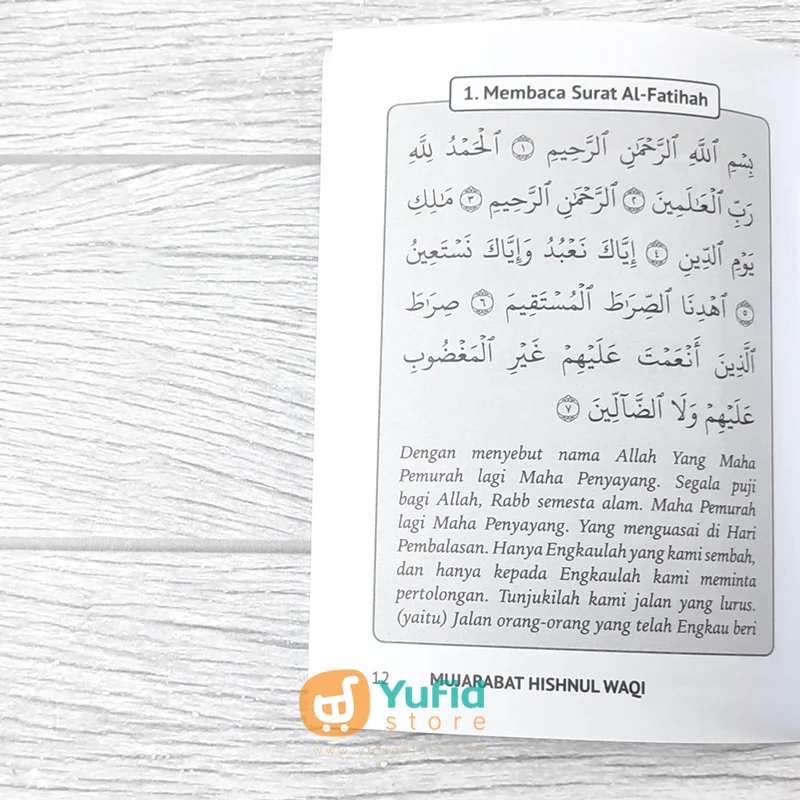 1. Membaca Surat Al-Fatihah
بِسْمِ ٱللَّهِ ٱلرَّحْمَٰنِ ٱلرَّحِيمِ ١ ٱلْحَمْدُ لِلَّهِ
رَبِّ ٱلْعَٰلَمِينَ ٢ ٱلرَّحْمَٰنِ ٱلرَّحِيمِ ٣ مَٰلِكِ
يَوْمِ ٱلدِّينِ ٤ إِيَّاكَ نَعْبُدُ وَإِيَّاكَ نَسْتَعِينُ
٥ ٱهْدِنَا ٱلصِّرَٰطَ ٱلْمُسْتَقِيمَ ٦ صِرَٰطَ
ٱلَّذِينَ أَنْعَمْتَ عَلَيْهِمْ غَيْرِ ٱلْمَغْضُوبِ
عَلَيْهِمْ وَلَا ٱلضَّآلِّينَ ٧
Dengan menyebut nama Allah Yang Maha
Pemurah lagi Maha Penyayang. Segala puji
bagi Allah, Rabb semesta alam. Maha Pemurah
lagi Maha Penyayang. Yang menguasai di Hari
Pembalasan. Hanya Engkaulah yang kami sembah,
dan hanya kepada Engkaulah kami meminta
pertolongan. Tunjukilah kami jalan yang lurus.
(yaitu) Jalan orang-orang yang telah Engkau beri
12 MUJARABAT HISHNUL WAQI
Yufid
store
www.yufidstore.com